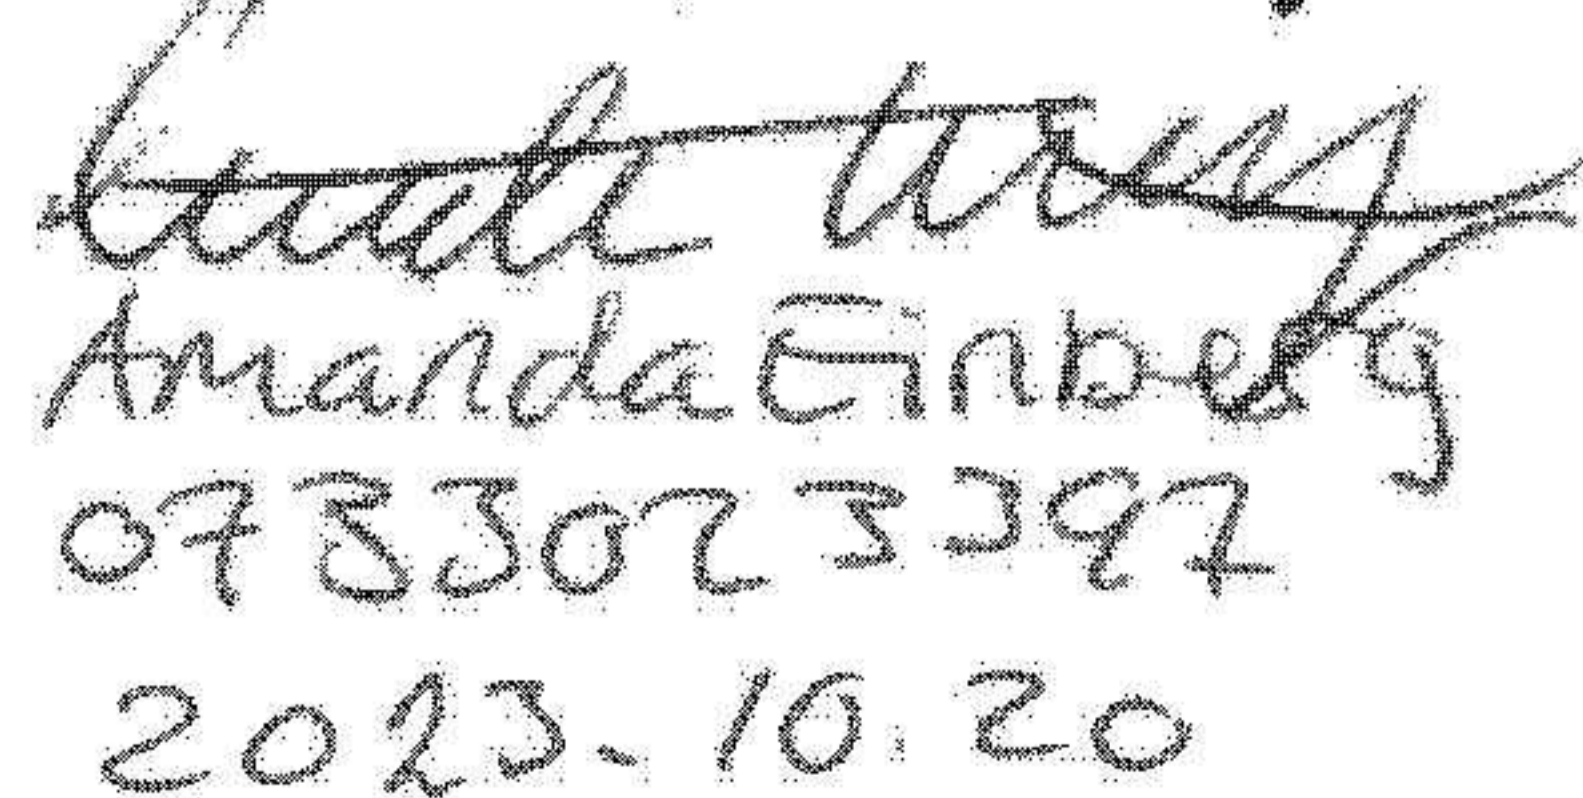 Amanda Einberg
0733023397
2023-10.20